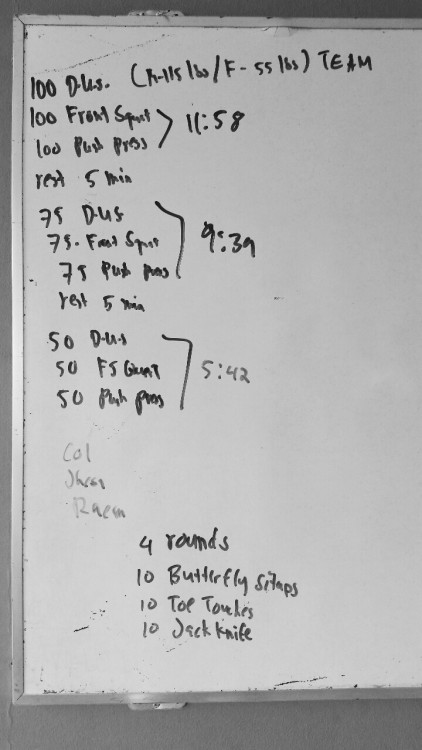 100 D.U.s. (R-115 lbs/F-55 lbs) TEAM
100 Front Squat
100 Push press
11:58
rest 5 min
75 D.U.s
75. Front Squat
75 Push press
9:39
rest 5 min
50 D.U.s
50 F Squat
50 Push press
5:42
Col
4 rounds
10 Butterfly Situps
10 Toe Touches
10 Jack knife